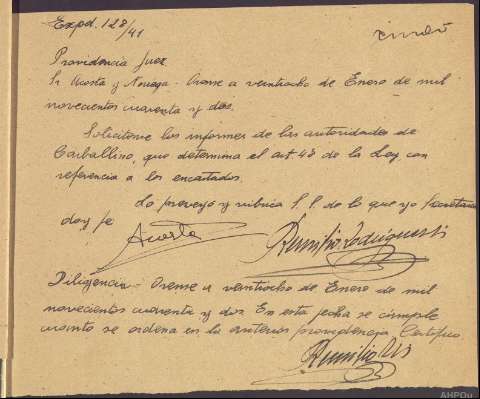 Exped. 128/41
Providencia Juez
Sr Acosta y Noriega - Orense a veintiocho de Enero de mil
novecientos cuarenta y dos.
Solicitense los informes de las autoridades de
Carballino, que determina el art 48 de la Ley con
referencia a los encartados.
Lo proveyó y rubrica S.S. de lo que yo Secretario
doy fe
Acosta
Remigio Rodriguez
Diligencia - Orense a veintiocho de Enero de mil
novecientos cuarenta y dos En esta fecha se cumple
cuanto se ordena en la anterior providencia Certifico.
AHPOu